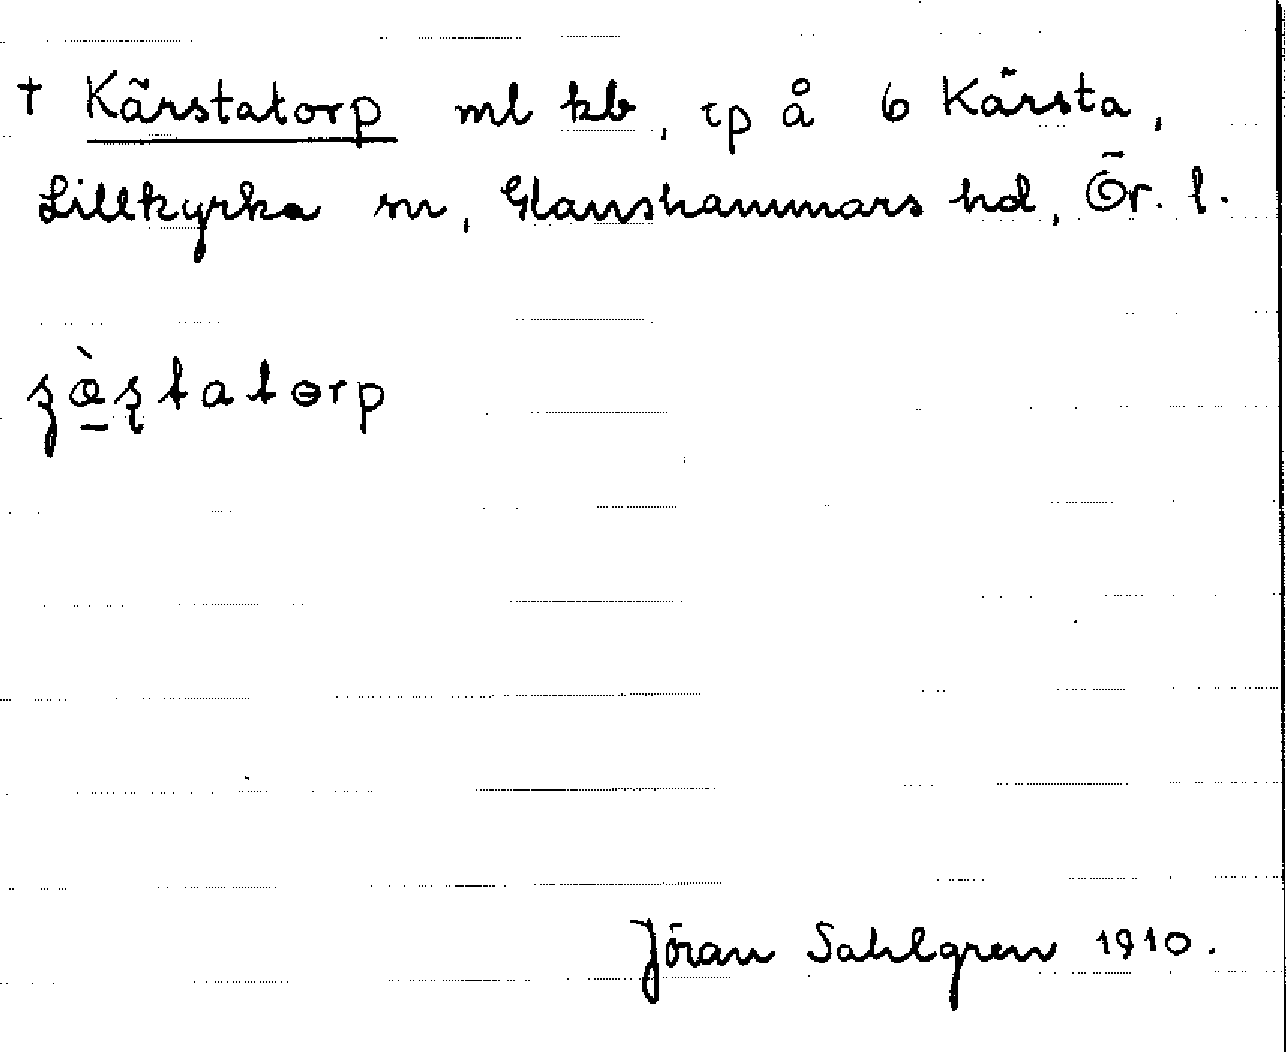 † Kärstatorp ml kb, tp å 6 Kärsta,
Lillkyrka sn, Glanshammars hd, Ör. l.
Jöran Sahlgren 1910.